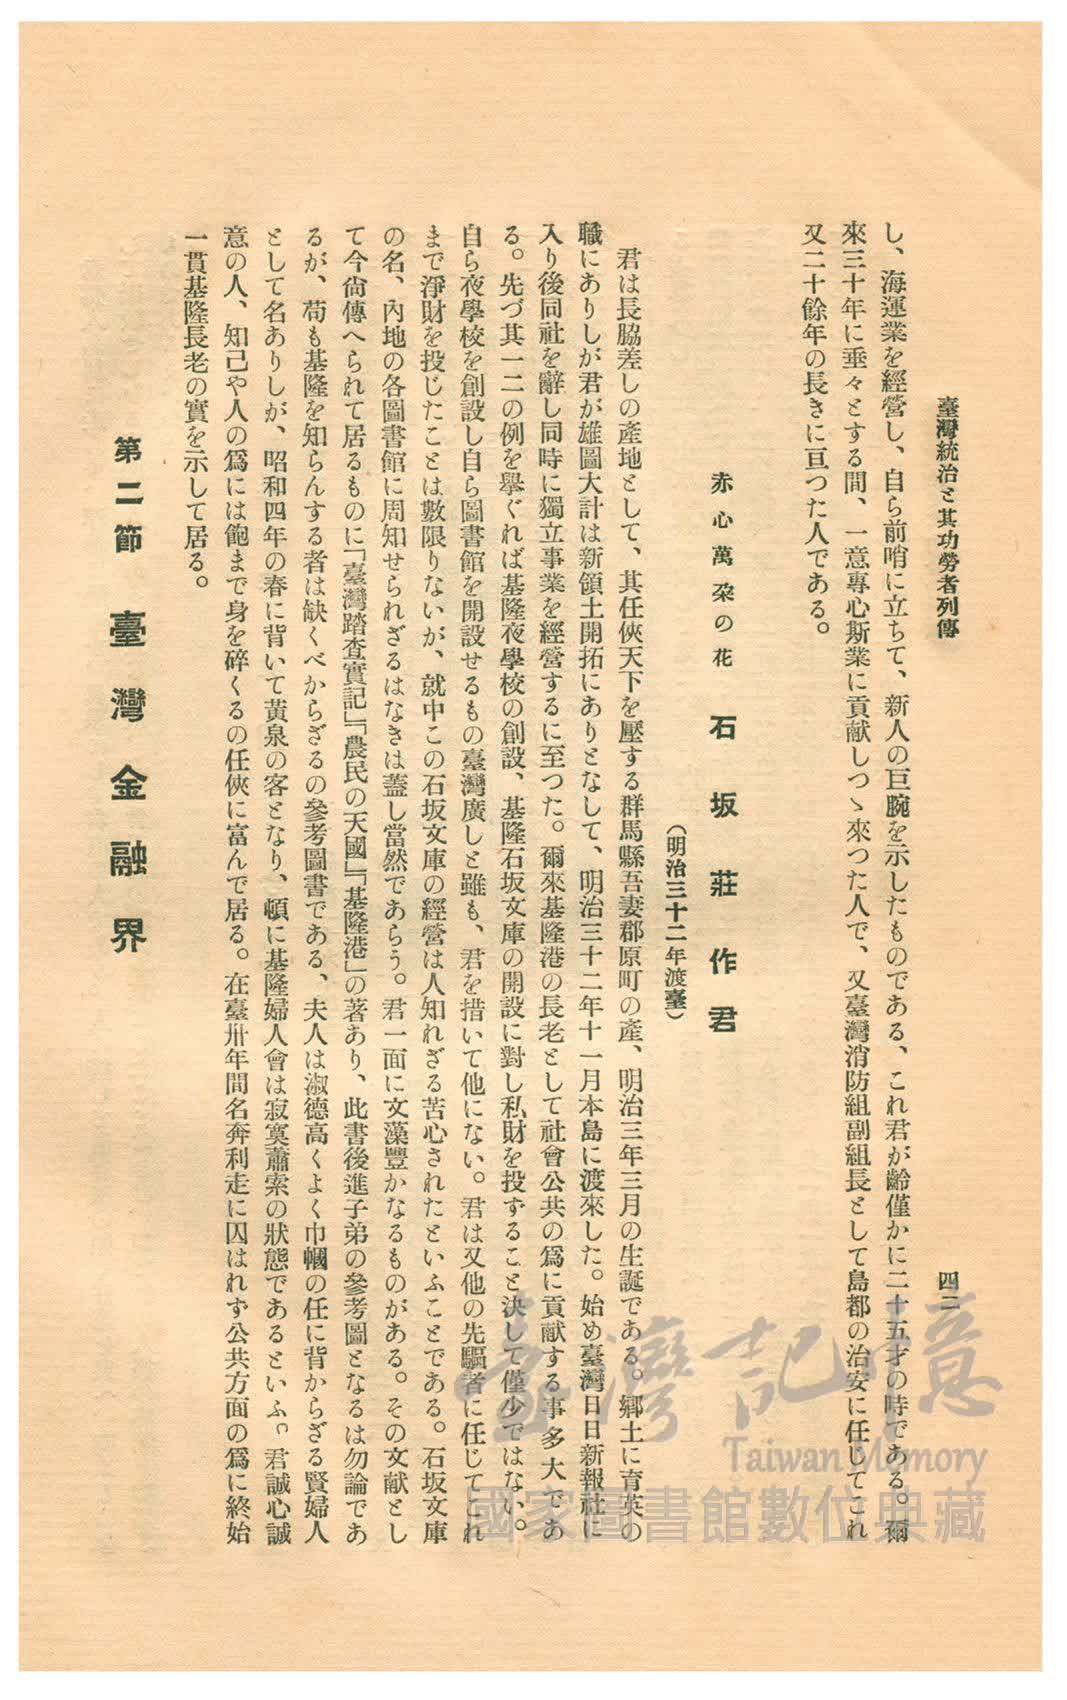 臺灣統治と其功勞者列傳
四二
し、海運業を經營し、自ら前哨に立ちて、新人の巨腕を示したものである、これ君が齡僅かに二十五才の時である。爾
來三十年に垂々とする間、一意專心斯業に貢献しつゝ來つた人で、又臺灣消防組副組長として島都の治安に任じてこれ
又二十餘年の長きに亘つた人である。
赤心萬朶の花
石坂莊作君
(明治三十二年渡臺)
君は長脇差しの產地として、其任俠天下を壓する群馬縣吾妻郡原町の產、明治三年三月の生誕である。鄉土に育英の
職にありしが君が雄圖大計は新領土開拓にありとなして、明治三十二年十一月本島に渡來した。始め臺灣日日新報社に
入り後同社を辭し同時に獨立事業を經營するに至つた。爾來基隆港の長老として社會公共の爲に貢献する事多大であ
る。先づ其一二の例を擧ぐれば基隆夜學校の創設、基隆石坂文庫の開設に對し私財を投ずること決して僅少ではない。
自ら夜學校を創設し自ら圖書館を開設せるもの臺灣廣しと雖も、君を措いて他にない。君は又他の先驅者に任じてこれ
まで淨財を投じたことは數限りないが、就中この石坂文庫の經營は人知れざる苦心されたといふことである。石坂文庫
の名、內地の各圖書館に周知せられざるはなきは蓋し當然であらう。君一面に文藻豐かなるものがある。その文献とし
て今尙傳へられて居るものに「臺灣踏查實記」「農民の天國」「基隆港」の著あり、此書後進子弟の參考圖となるは勿論であ
るが、苟も基隆を知らんする者は缺くべからざるの參考圖書である、夫人は淑德高くよく巾幗の任に背からざる賢婦人
として名ありしが、昭和四年の春に背いて黃泉の客となり、頓に基隆婦人會は寂寞蕭索の狀態であるといふ。君誠心誠
意の人、知己や人の爲には飽まで身を碎くるの任俠に富んで居る。在臺卅年間名奔利走に囚はれず公共方面の爲に終始
一貫基隆長老の實を示して居る。
第二節 臺灣金融界
臺灣記憶
Taiwan Memory
國家圖書館數位典藏